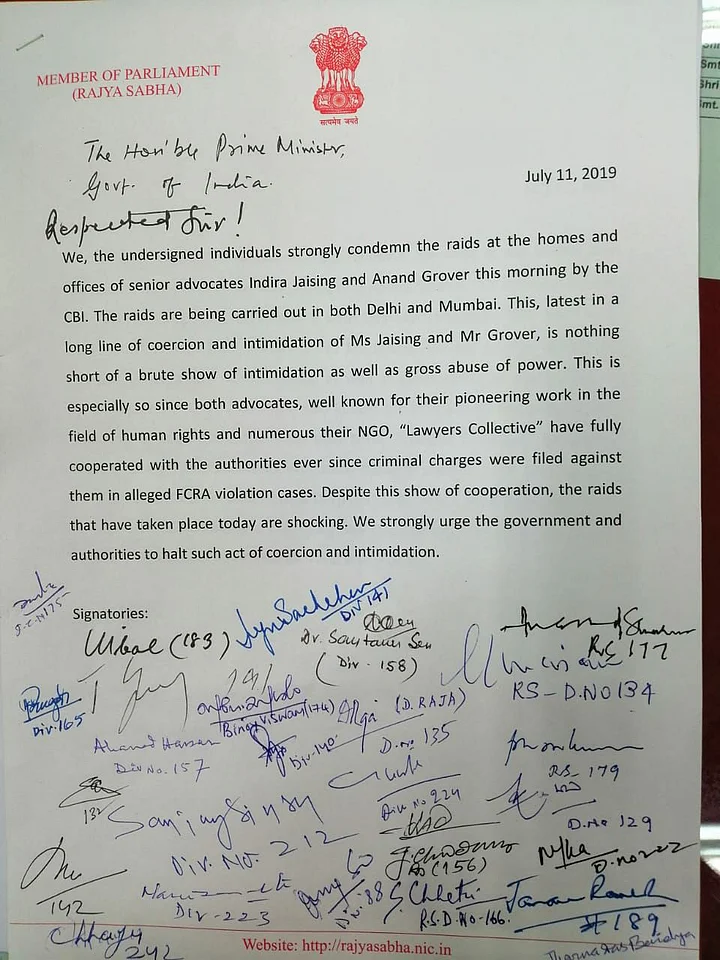 MEMBER OF PARLIAMENT
(RAJYA SABHA)
सत्यमेव जयते
The Hon'ble Prime Minister,
Govt. of India.
July 11, 2019
Respected Sir!
We, the undersigned individuals strongly condemn the raids at the homes and
offices of senior advocates Indira Jaising and Anand Grover this morning by the
CBI. The raids are being carried out in both Delhi and Mumbai. This, latest in a
long line of coercion and intimidation of Ms Jaising and Mr Grover, is nothing
short of a brute show of intimidation as well as gross abuse of power. This is
especially so since both advocates, well known for their pioneering work in the
field of human rights and numerous their NGO, “Lawyers Collective” have fully
cooperated with the authorities ever since criminal charges were filed against
them in alleged FCRA violation cases. Despite this show of cooperation, the raids
that have taken place today are shocking. We strongly urge the government and
authorities to halt such act of coercion and intimidation.
Signatories:
(183)
DIV 141
Dr. Santanu Sen
(Div - 158)
Anand Sharma
RS 177
RS - D.NO 134
Div. 165
Binoy Viswam (174)
(D. RAJA)
D. no 135
Div. 140
Div No. 157
RS - 179
132
Sanjay Singh
Div. No. 212
Div No 224
D. No 129
(156)
D. no 202
142
Div - 223
Div. 88
Chhetri
R.S D.No-166.
Jairam Ramesh
# 189
Chhaya
242
Website: http://rajyasabha.nic.in
Smt
Shri
Smt.